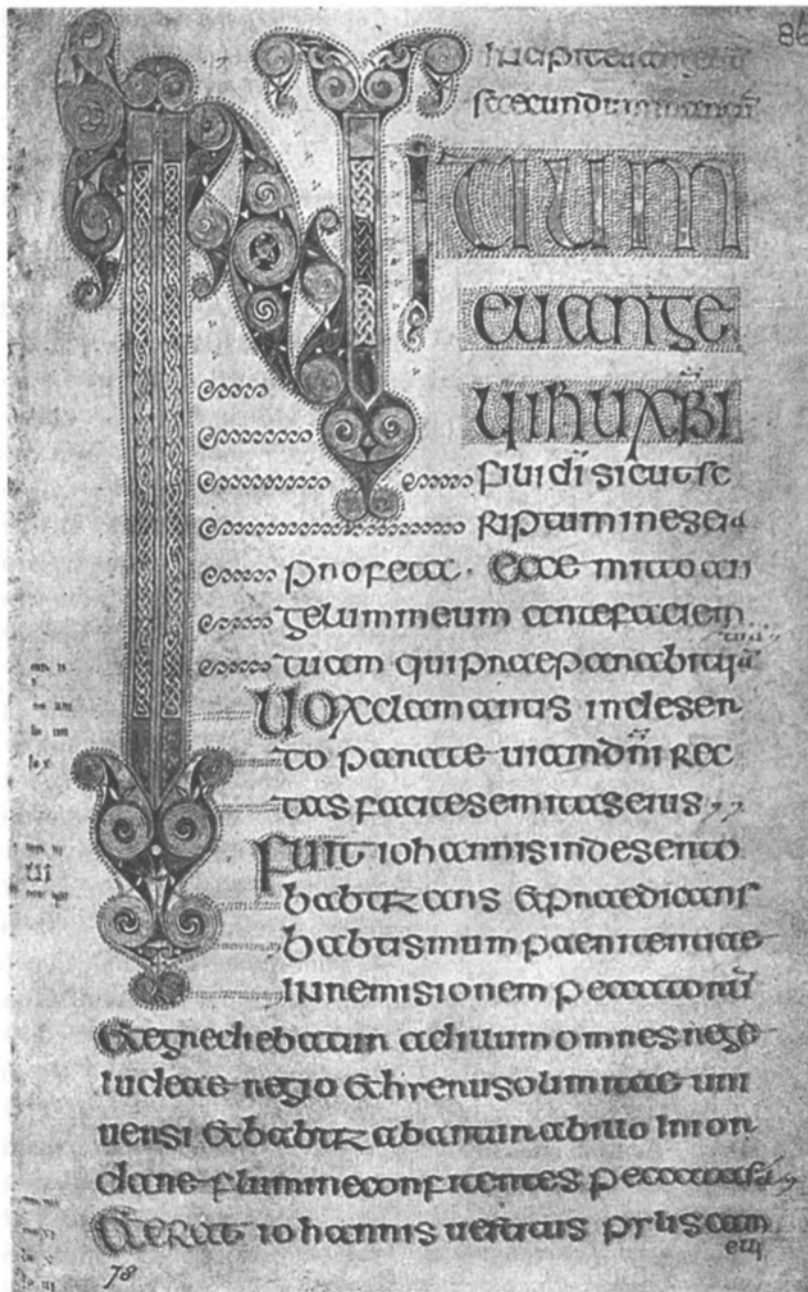 86
secundum marcū
INITIUM
euange
lii ihu xpi
fili di sicut sc
riptum in eseia
profeta · Ecce mitto an
gelum meum ante faciem
tuā
tuam qui praeparabit uiā
Uox clamantis in deser
to parate uiam dni rec
tas facite semitas eius
Fuit iohannis in deserto
babtizans & praedicans
babtismum paenitentiae
in remisionem peccatorū
& egrediebatur ad illum omnes rege
iudeae regio & hierusolimitae uni
uersi & babtizabantur ab illo in ior
dane flumine confitentes peccata sā
& erat iohannis uestitus pylis cam
78